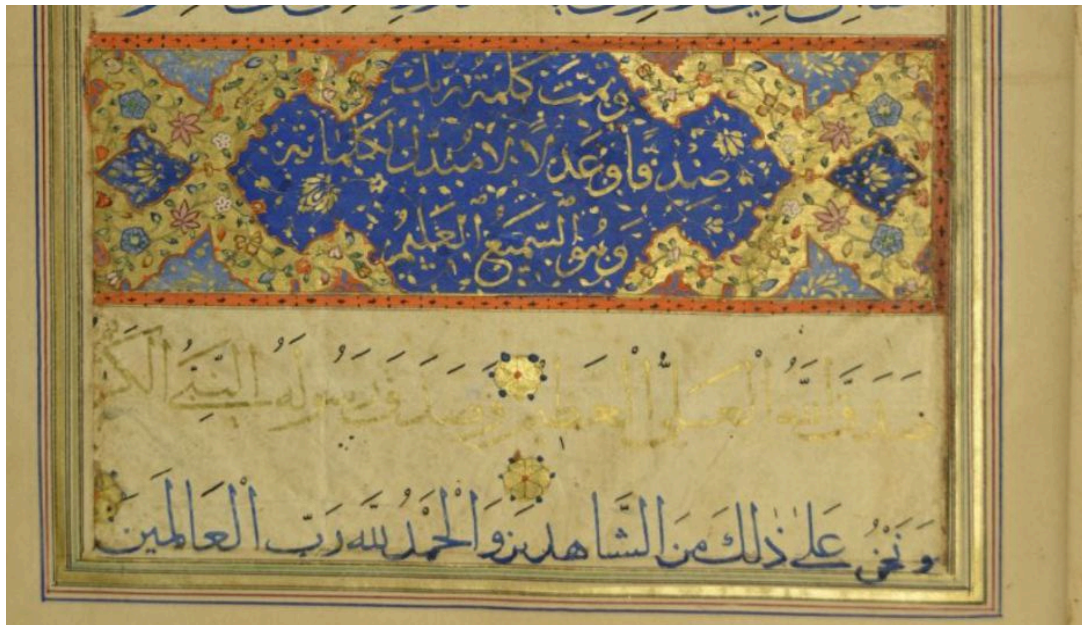 وتمت كلمة ربك
صدقا وعدلا لا مبدل لكلماته
وهو السميع العليم
صدق الله العلي العظيم وصدق رسوله النبي الكريم
وَنَحْنُ عَلىٰ ذٰلِكَ مِنَ الشَّاهِدِينَ وَالْحَمْدُ لِلَّهِ رَبِّ الْعَالَمِينَ